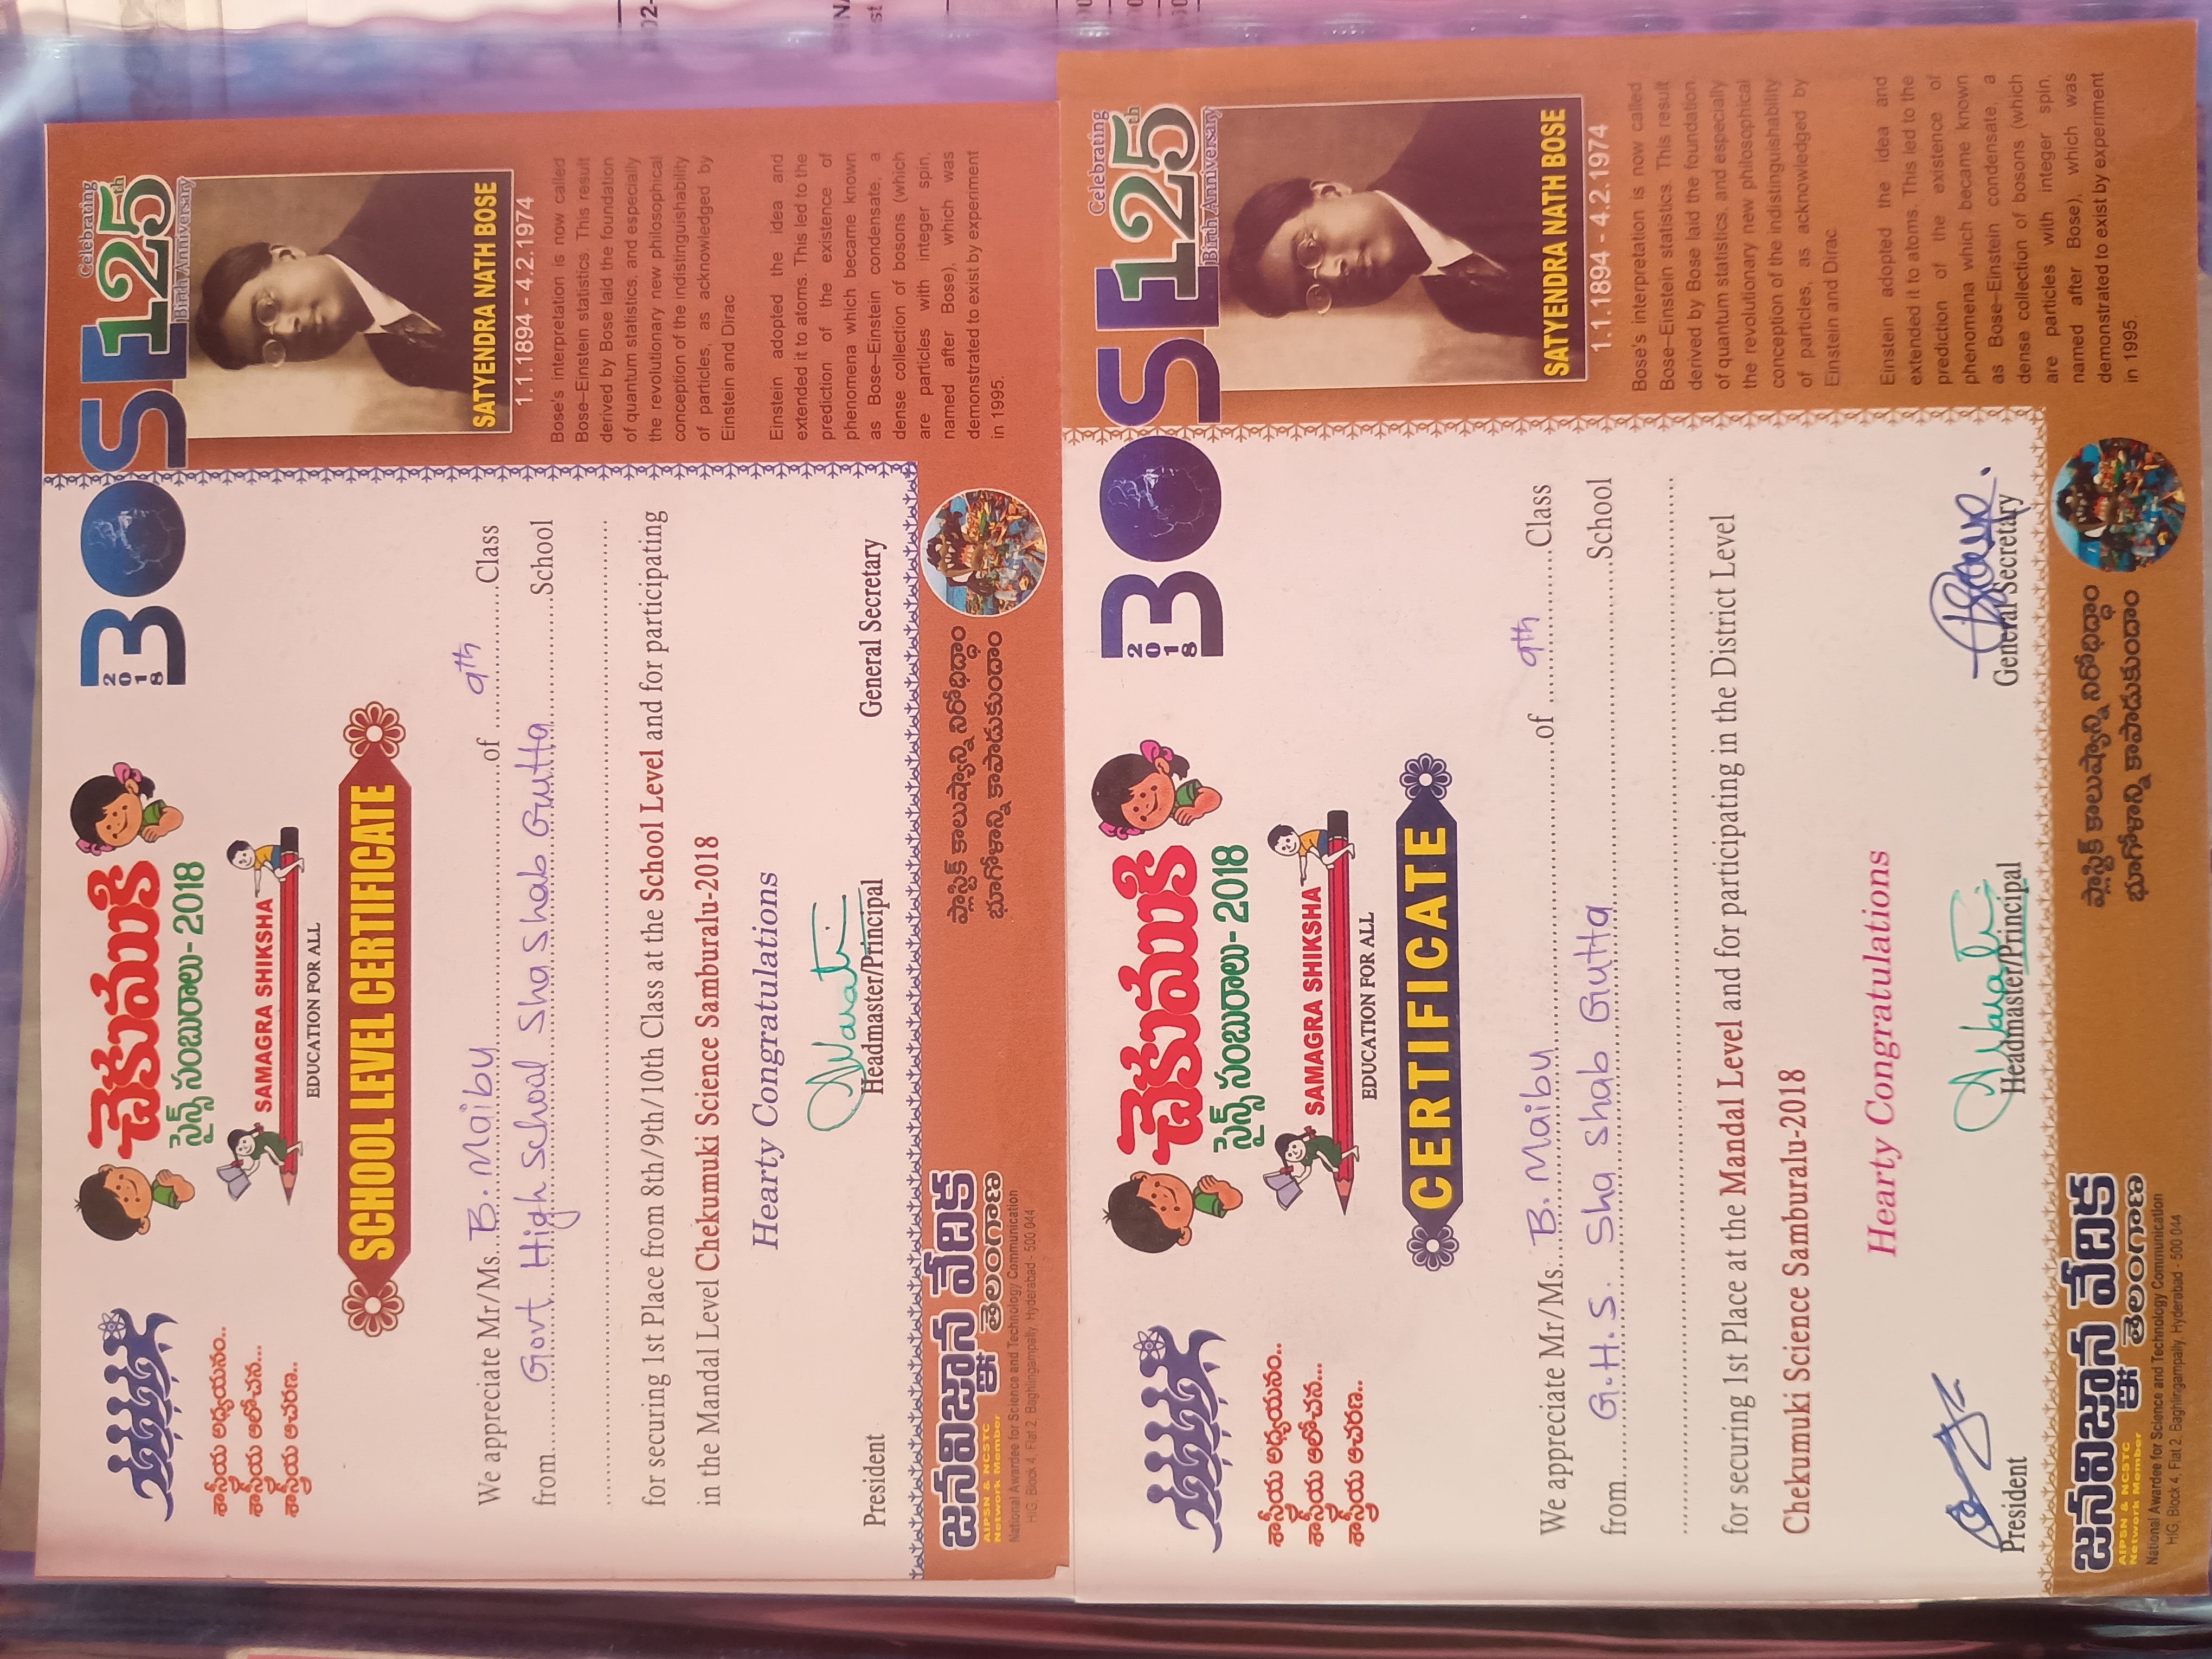 చెకుముకి
సైన్స్ సంబురాలు- 2018
శాస్త్రీయ అధ్యయనం..
శాస్త్రీయ ఆలోచన...
శాస్త్రీయ ఆచరణ..
SAMAGRA SHIKSHA
EDUCATION FOR ALL
SCHOOL LEVEL CERTIFICATE
We appreciate Mr/Ms. B. Maibu of 9th Class
from Govt High School Sha Shab Gutta School
for securing 1st Place from 8th/9th/10th Class at the School Level and for participating
in the Mandal Level Chekumuki Science Samburalu-2018
Hearty Congratulations
President Headmaster/Principal General Secretary
జనవిజ్ఞాన వేదిక
AIPSN & NCSTC
Network Member
తెలంగాణ
National Awardee for Science and Technology Communication
HIG, Block 4, Flat 2, Baghlingampally, Hyderabad - 500 044
ప్లాస్టిక్ కాలుష్యాన్ని నిరోధిద్దాం
భూగోళాన్ని కాపాడుకుందాం
2018
BOSE
Celebrating
125th
Birth Anniversary
SATYENDRA NATH BOSE
1.1.1894 - 4.2.1974
Bose's interpretation is now called
Bose–Einstein statistics. This result
derived by Bose laid the foundation
of quantum statistics, and especially
the revolutionary new philosophical
conception of the indistinguishability
of particles, as acknowledged by
Einstein and Dirac
Einstein adopted the idea and
extended it to atoms. This led to the
prediction of the existence of
phenomena which became known
as Bose–Einstein condensate, a
dense collection of bosons (which
are particles with integer spin,
named after Bose), which was
demonstrated to exist by experiment
in 1995.
చెకుముకి
సైన్స్ సంబురాలు- 2018
శాస్త్రీయ అధ్యయనం..
శాస్త్రీయ ఆలోచన...
శాస్త్రీయ ఆచరణ..
SAMAGRA SHIKSHA
EDUCATION FOR ALL
CERTIFICATE
We appreciate Mr/Ms. B. Maibu of 9th Class
from G.H.S. Sha Shab Gutta School
for securing 1st Place at the Mandal Level and for participating in the District Level
Chekumuki Science Samburalu-2018
Hearty Congratulations
President Headmaster/Principal General Secretary
జనవిజ్ఞాన వేదిక
AIPSN & NCSTC
Network Member
తెలంగాణ
National Awardee for Science and Technology Communication
HIG, Block 4, Flat 2, Baghlingampally, Hyderabad - 500 044
ప్లాస్టిక్ కాలుష్యాన్ని నిరోధిద్దాం
భూగోళాన్ని కాపాడుకుందాం
2018
BOSE
Celebrating
125th
Birth Anniversary
SATYENDRA NATH BOSE
1.1.1894 - 4.2.1974
Bose's interpretation is now called
Bose–Einstein statistics. This result
derived by Bose laid the foundation
of quantum statistics, and especially
the revolutionary new philosophical
conception of the indistinguishability
of particles, as acknowledged by
Einstein and Dirac
Einstein adopted the idea and
extended it to atoms. This led to the
prediction of the existence of
phenomena which became known
as Bose–Einstein condensate, a
dense collection of bosons (which
are particles with integer spin,
named after Bose), which was
demonstrated to exist by experiment
in 1995.